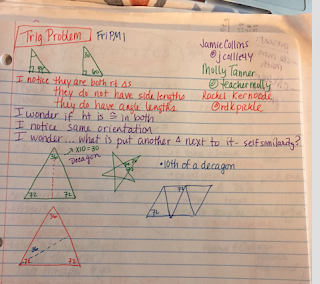 Trig Problem Fri PM1
Jamie Collins
@jcollie44
Molly Tanner
@teachermolly
Rachel Kernodle
@rdkpickle
I notice they are both rt △s
they do not have side lengths
they do have angle lengths.
I wonder if ht is ≅ in both
I notice same orientation
I wonder... what is put another △ next to it - self similarity?
36
x10=30
Decagon
72 72
• 10th of a decagon
72
36
36
72 72